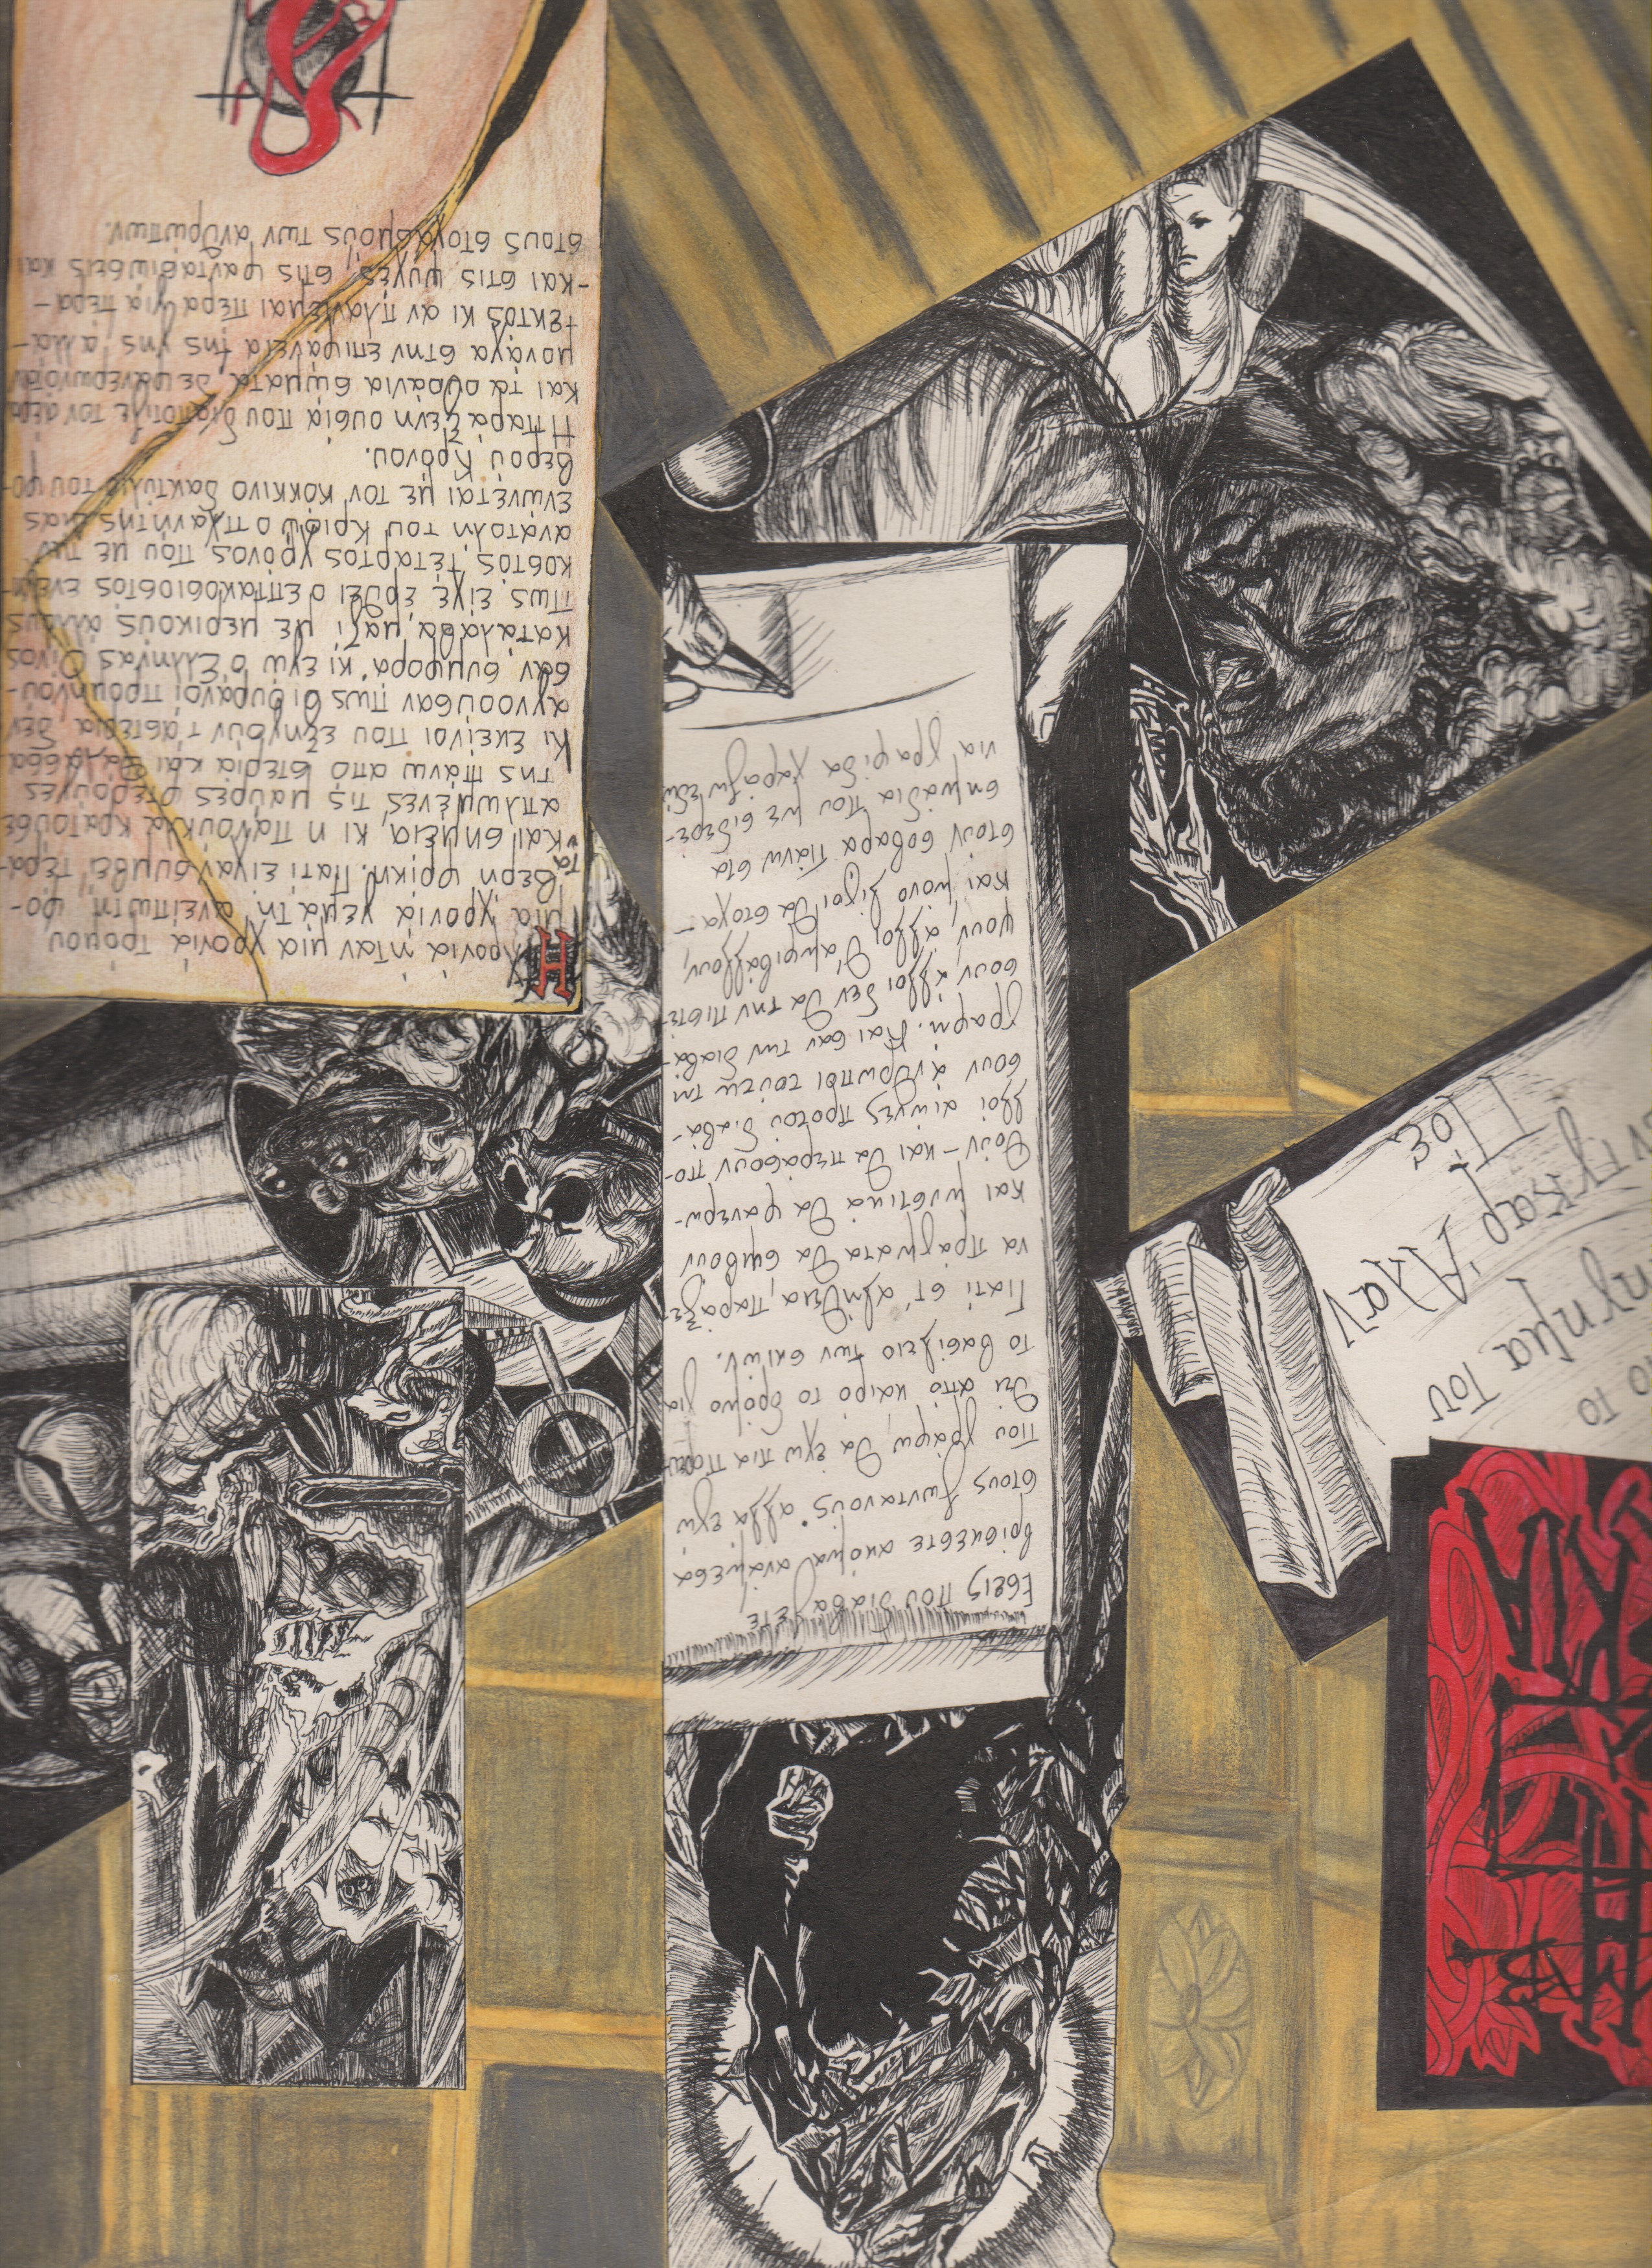 Η
ΣΚΙΑ
από το
διήγημα του
Έντγκαρ Άλαν
Πόε
Εσείς που διαβάζετε,
βρίσκεστε ακόμα ανάμεσα
στους ζωντανούς· αλλά εγώ
που γράφω, θα έχω πια πορευ-
θεί από καιρό το δρόμο για
το βασίλειο των σκιών.
Γιατί στ' αλήθεια, παράξε-
να πράγματα θα συμβούν
και μυστικά θα φανερω-
θούν – και θα περάσουν πο-
λλοί αιώνες προτού διαβά-
σουν άνθρωποι τούτη τη
γραφή. Και σαν την διαβά-
σουν, άλλοι δεν θα την πιστέ-
ψουν, άλλοι θ'αμφιβάλλουν,
και μόνο λίγοι θα στοχα-
στούν σοβαρά πάνω στα
σημάδια που με σιδερέ-
νια γραφίδα χαράζω εδώ
Η χρονιά ήταν μια χρονιά τρόμου,
μια χρονιά γεμάτη ανείπωτη φο-
βερή φρίκη. Γιατί είχαν συμβεί τέρα-
τα και σημεία, κι η πανούκλα κρατούσε
απλωμένες τις μαύρες φτερούγες
της πάνω από στεριά και θάλασσα.
Κι εκείνοι που εξηγούν τ'αστέρια, δεν
αγνοούσαν πως οι ουρανοί προμηνού-
σαν συμφορά· κι εγώ ο Έλληνας Οίνος
κατάλαβα, μαζί με μερικούς άλλους
πως είχε έρθει ο επτακοσιοστός ενενη
κοστός τέταρτος χρόνος, που με την
ανατολή του Κριού, ο πλανήτης Δίας
ενώνεται με τον κόκκινο δακτύλιο του φο-
βερού Κρόνου.
Η παράξενη ουσία που διαπότιζε τον αέρα
και τα ουράνια σώματα, δε φανερωνόταν
μονάχα στην επιφάνεια της γης, αλλά-
-εκτός κι αν πλανιέμαι πέρα για πέρα-
-και στις ψυχές, στις φαντασιώσεις και
στους στοχασμούς των ανθρώπων.